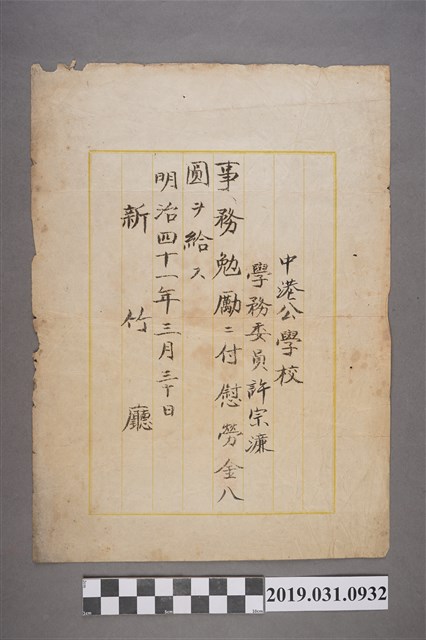 中港公學校
學務委員許宗濂
事務勉勵ニ付慰勞金八
圓ヲ給ス
明治四十一年三月三十日
新竹廳
2019.031.0932